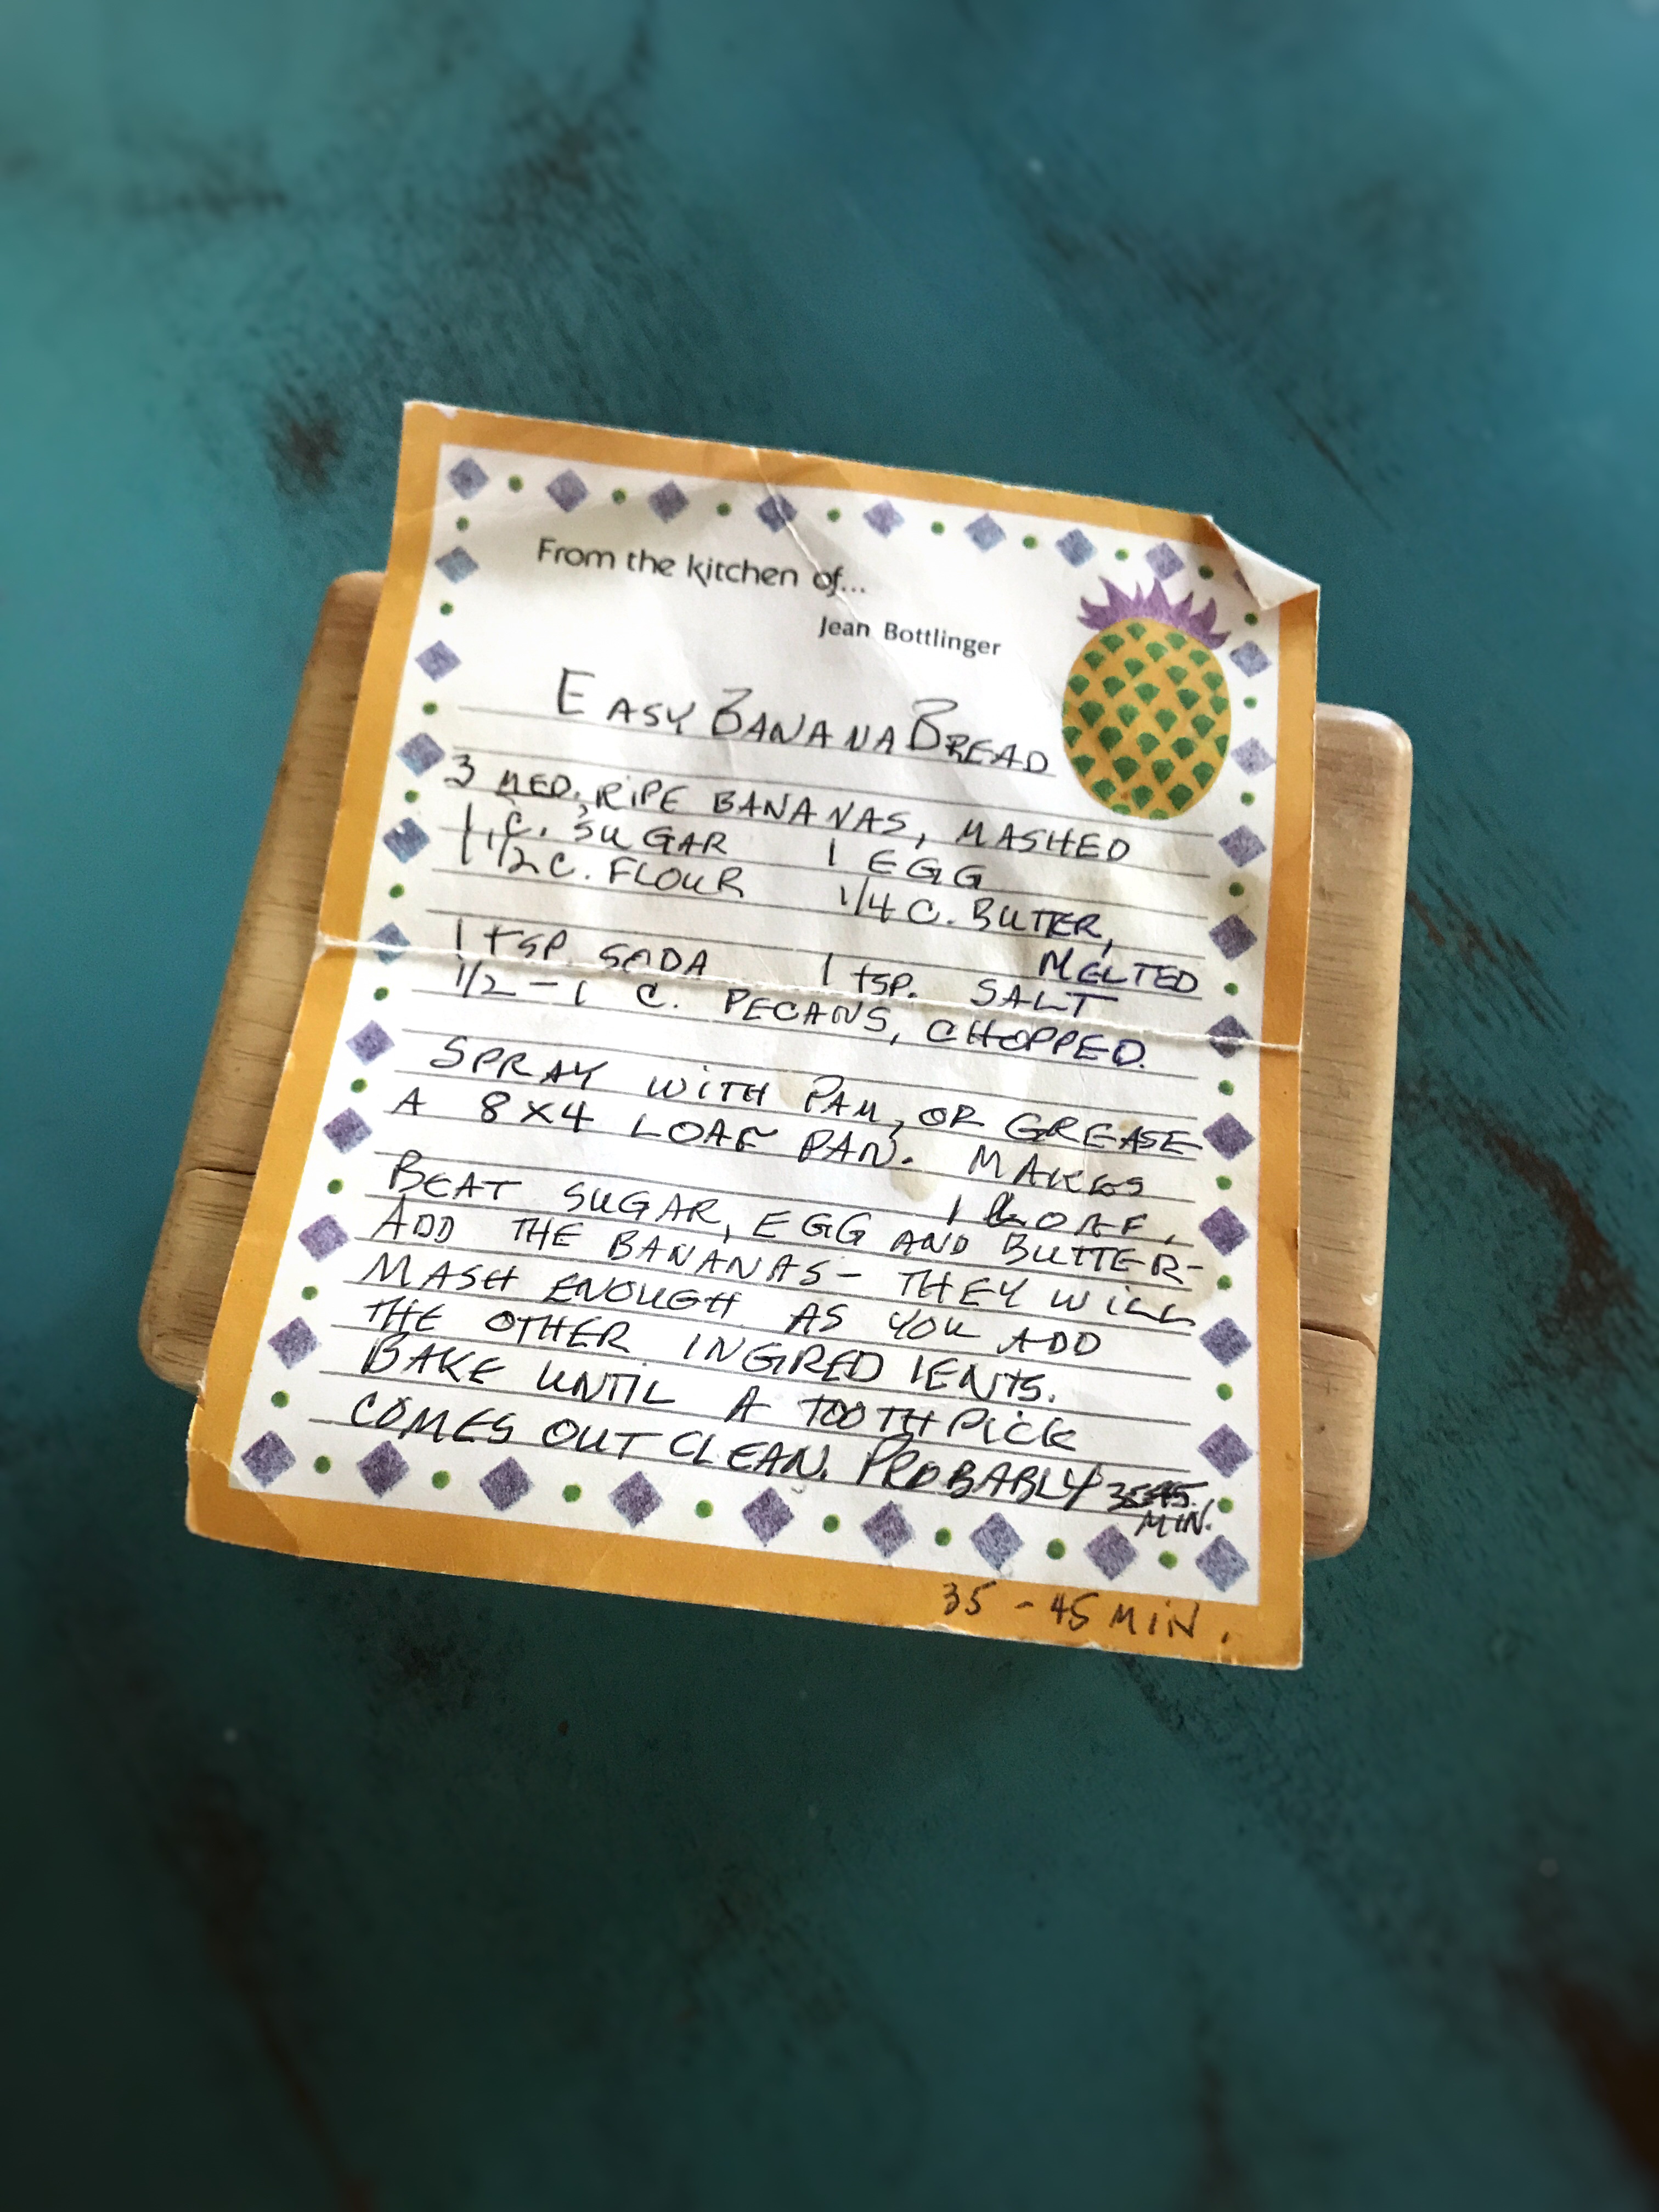 From the kitchen of...
Jean Bottlinger
EASY BANANA BREAD
3 MED. RIPE BANANAS, MASHED
1 C. SUGAR 1 EGG
1 1/2 C. FLOUR 1/4 C. BUTTER,
MELTED
1 tSP. SODA 1 tSP. SALT
1/2 - 1 C. PECANS, CHOPPED.
SPRAY WITH PAM, OR GREASE
A 8X4 LOAF PAN. MAKES
1 LOAF.
BEAT SUGAR, EGG AND BUTTER-
ADD THE BANANAS - THEY WILL
MASH ENOUGH AS YOU ADD
THE OTHER INGREDIENTS.
BAKE UNTIL A TOOTHPICK
COMES OUT CLEAN. PROBABLY 35-45
MIN.
35 - 45 MIN.